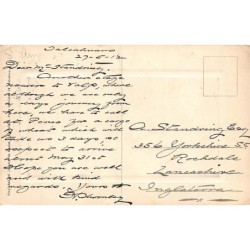 Talcahuano
27-5-12
Dear Mr Standring
Another stage
nearer to Valpo, since
although we are only
a days journey from
here, we have to call
at Tome for a cargo
of wheat which will
take us 3 days &
expect to arrive
about May 31st
Hope you are well
and with kind
regards. Yours &c
A. Standring Esq
356 Yorkshire St
Rochdale
Lancashire
Inglaterra